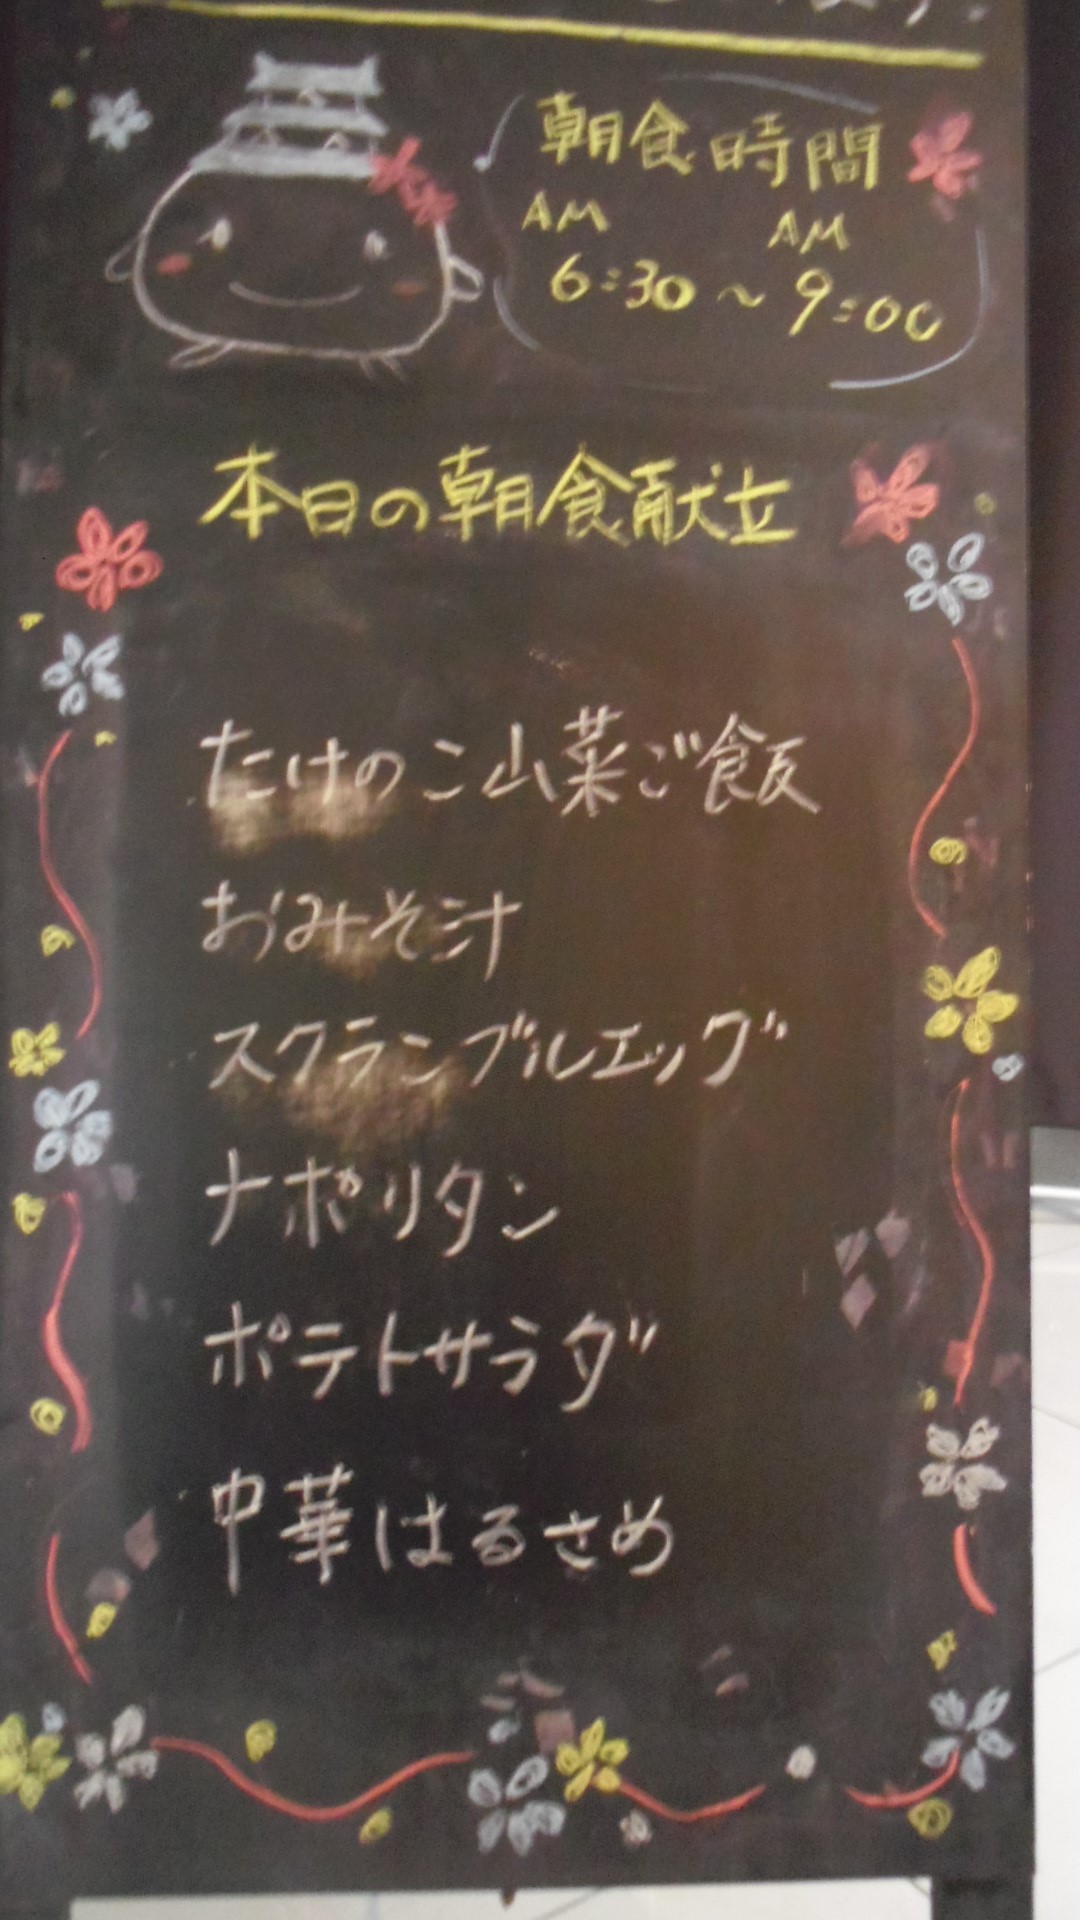 朝食時間
AM AM
6:30～9:00
本日の朝食献立
たけのこ山菜ご飯
おみそ汁
スクランブルエッグ
ナポリタン
ポテトサラダ
中華はるさめ